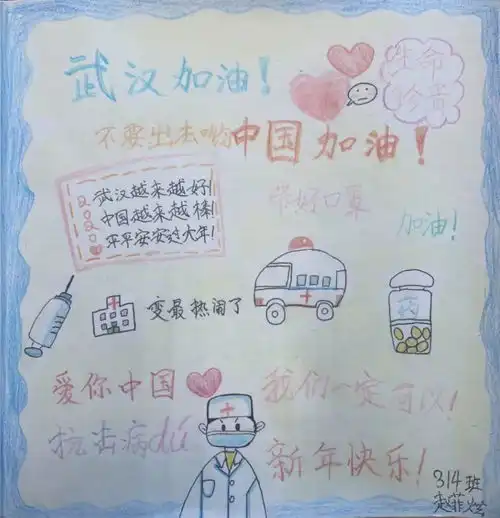 武汉加油！
生命
珍贵
不要出去哟
中国加油！
2020
武汉越来越好！
中国越来越棒！
平平安安过大年！
带好口罩
加油！
药
变最热闹了
爱你中国
我们一定可以！
抗击病dú
新年快乐！
314班
赵菲